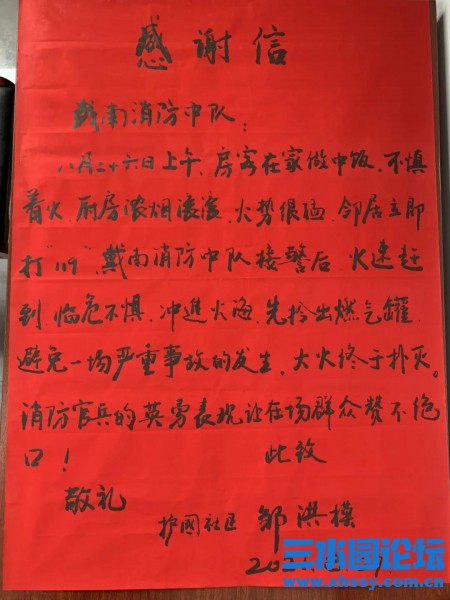 感谢信
戴南消防中队：
八月二十六日上午，房客在家做中饭，不慎
着火，厨房浓烟滚滚，火势很猛，邻居立即
打"119"，戴南消防中队接警后，火速赶
到，临危不惧，冲進火海，先拎出燃气罐，
避免一场严重事故的发生，大火终于扑灭。
消防官兵的英勇表现让在场群众赞不绝
口！ 此致
敬礼
护国社区 邹洪模
三水园论坛
www.xhssy.com.cn